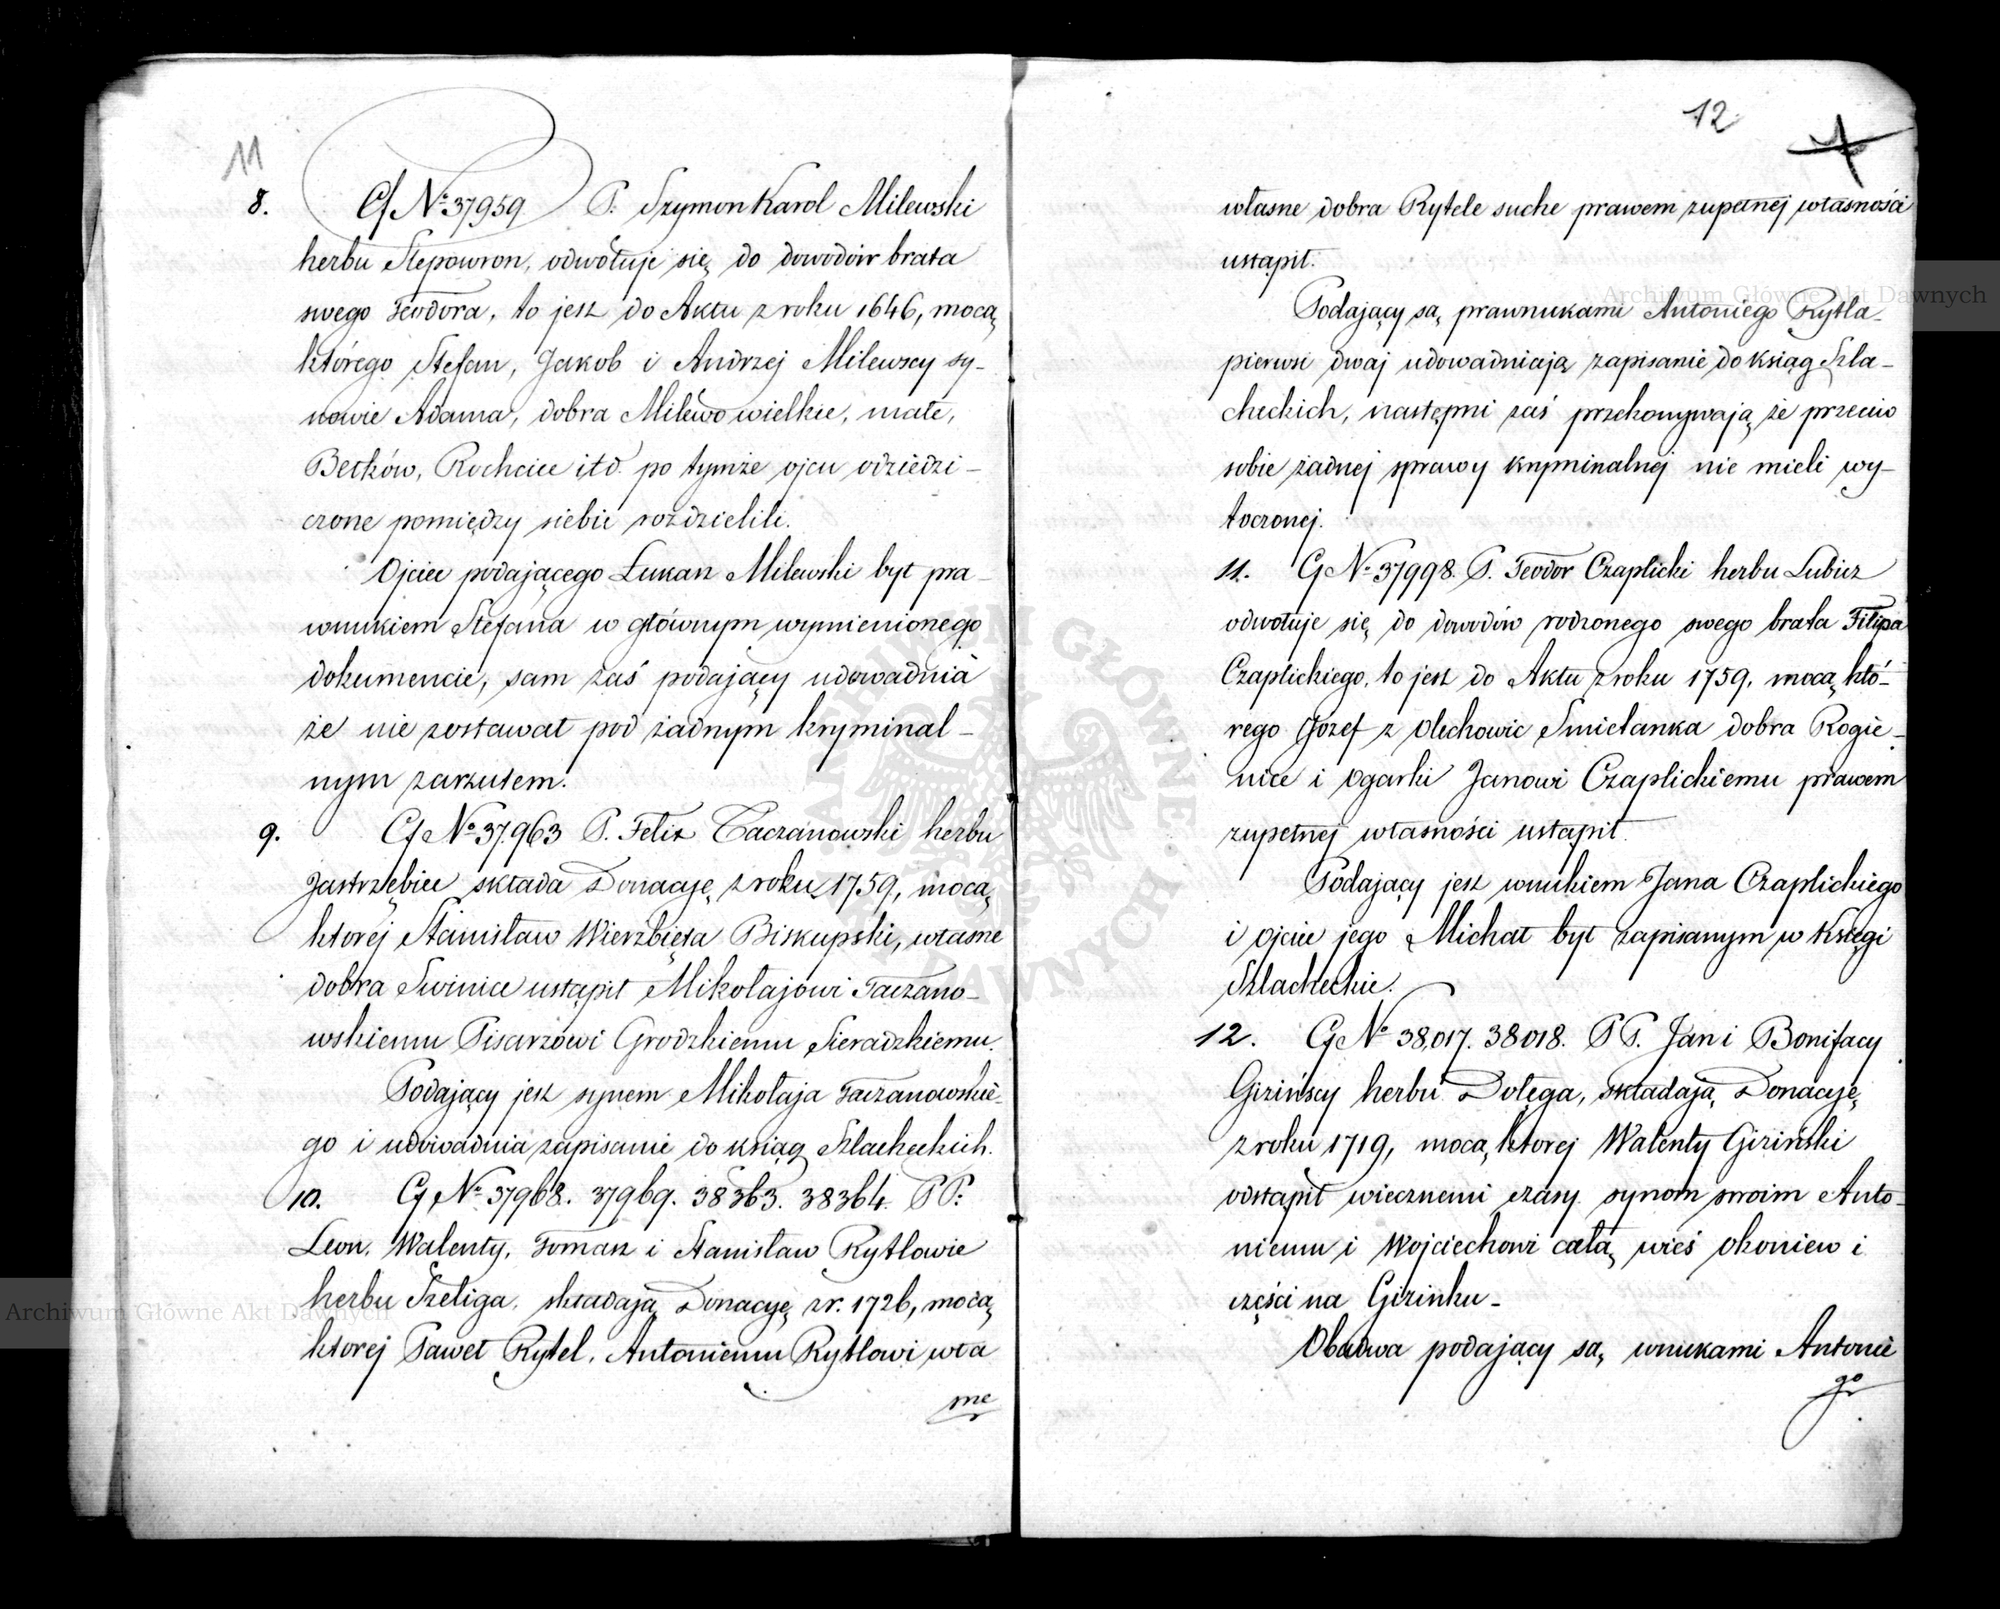 11
8. Cf Nº 37959 P. Szymon Karol Milewski
herbu Slepowron, odwołuje się do dowodów brata
swego Teodora, to jest do Aktu z roku 1646, mocą
którego Stefan, Jakob i Andrzej Milewscy sy-
nowie Adama, dobra Milewo wielkie, małe,
Betków, Rochcice itd. po tymże ojcu odziedzi-
czone pomiędzy siebie rozdzielili.
Ojciec podającego Łukasz Milewski był pra-
wnukiem Stefana w głównym wymienionego
dokumencie, sam zaś podający udowadnia
że nie zostawał pod żadnym kryminal-
nym zarzutem.
9. Cf Nº 37963 P. Felix Taczanowski herbu
Jastrzębiec składa Donacyę z roku 1759, mocą
ktorej Stanisław Wierzbięta Biskupski, własne
dobra Swinice ustąpił Mikołajowi Taczano-
wskiemu Pisarzowi Grodzkiemu Sieradzkiemu.
Podający jest synem Mikołaja Taczanowskie-
go i udowadnia zapisanie do ksiąg Szlacheckich.
10. Cf Nº 37968. 37969. 38363. 38364. PP.
Leon, Walenty, Tomasz i Stanisław Rytlowie
herbu Szeliga, składają Donacyę z r. 1726, mocą
ktorej Paweł Rytel, Antoniemu Rytlowi wła
sne
12
własne dobra Rytele suche prawem zupełnej własności
ustąpił.
Podający są prawnukami Antoniego Rytla-
pierwsi dwaj udowadniają zapisanie do ksiąg Szla-
checkich, następni zaś przekonywają że przeciw
sobie żadnej sprawy kryminalnej nie mieli wy-
toczonej.
11. Cf Nº 37998. P. Teodor Czaplicki herbu Lubicz
odwołuje się do dowodów rodzonego swego brata Filipa
Czaplickiego, to jest do Aktu z roku 1759, mocą któ-
rego Jozef z Olechowic Smietanka dobra Rogie-
nice i Ogarki Janowi Czaplickiemu prawem
zupełnej własności ustąpił.
Podający jest wnukiem Jana Czaplickiego
i ojciec jego Michał był zapisanym w Księgi
Szlacheckie.
12. Cf Nº 38,017. 38018. PP. Jan i Bonifacy
Girińscy herbu Dołęga, składają Donacyę
z roku 1719, mocą ktorej Walenty Giriński
odstąpił wiecznemi czasy synom swoim Anto-
niemu i Wojciechowi całą wieś Okoniew i
części na Girinku-
Obadwa podający są wnukami Antonie
go
Archiwum Główne Akt Dawnych
Archiwum Główne Akt Dawnych
ARCHIWUM GŁÓWNE AKT DAWNYCH